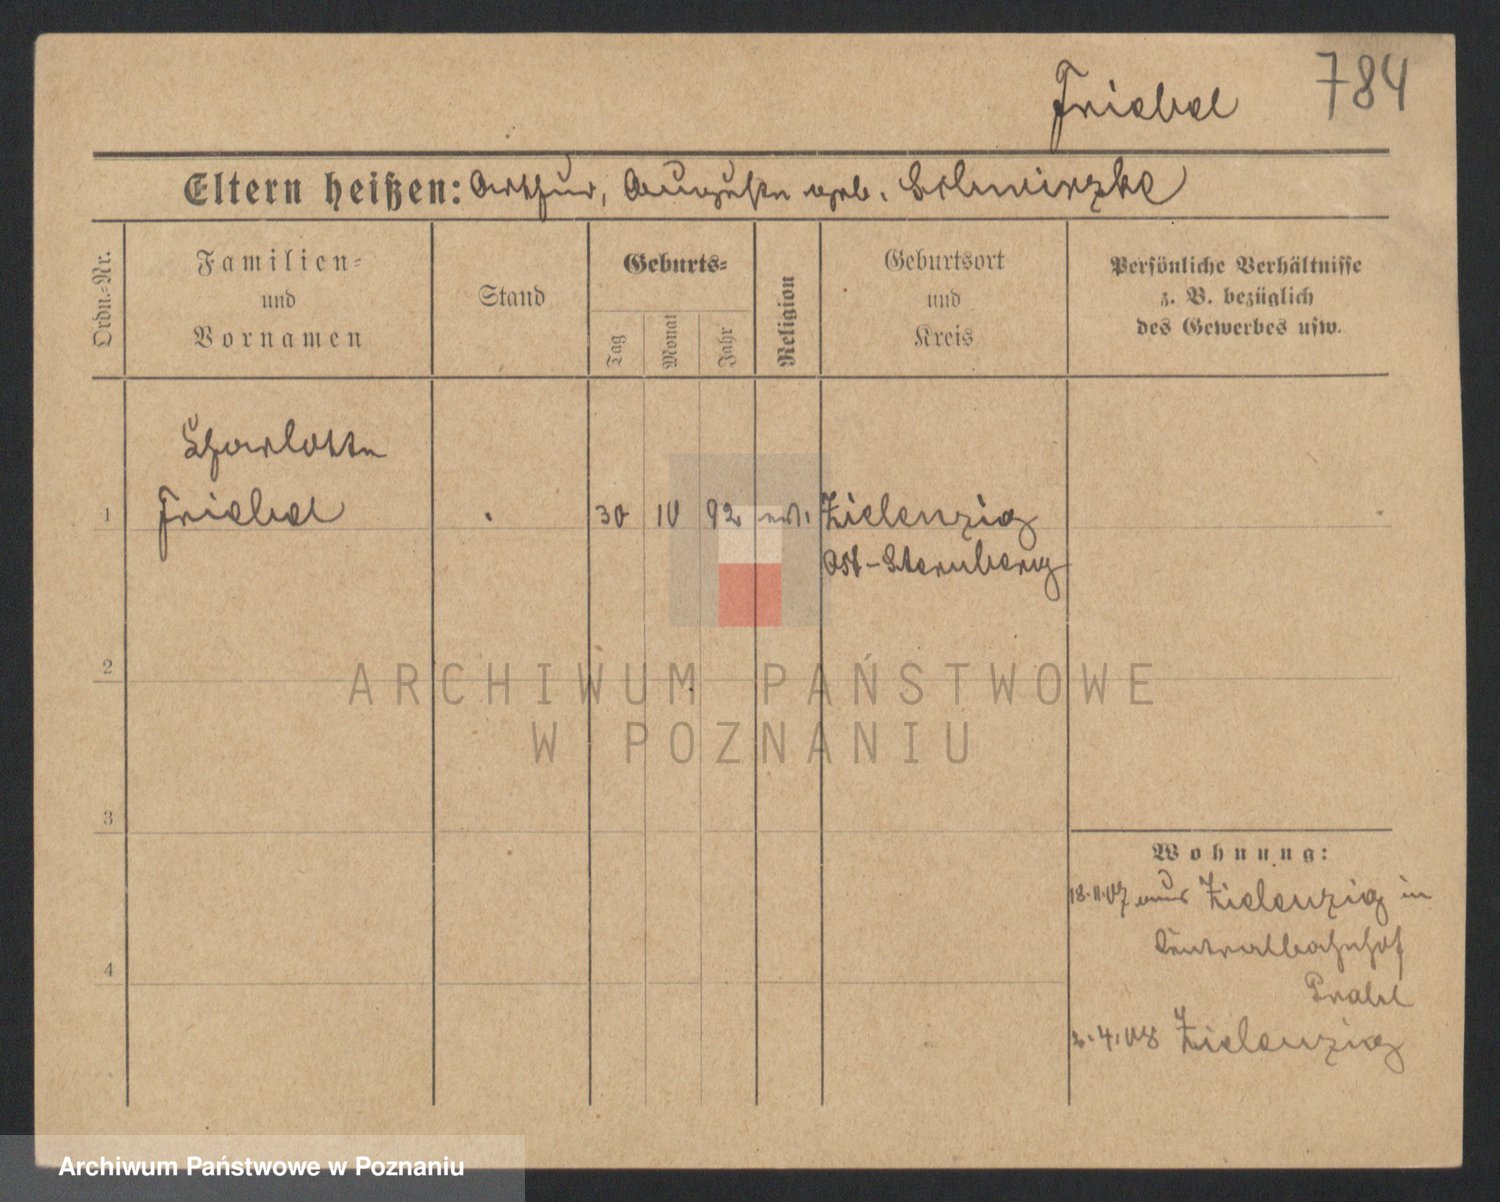 784
Friebel
Eltern heißen: Arthur, Auguste geb. Schmirzke
Ordn.-Nr.
Familien-
und
Vornamen
Stand
Geburts-
Tag
Monat
Jahr
Religion
Geburtsort
und
Kreis
Persönliche Verhältnisse
z. B. bezüglich
des Gewerbes usw.
Charlotte
1 Friebel . 30 10 92 ev. Zielenzig
Ost-Sternberg
2
3
4
Wohnung:
18.11.07 aus Zielenzig in
Centralbahnhof
2.4.08 Zielenzig
ARCHIWUM PAŃSTWOWE
W POZNANIU
Archiwum Państwowe w Poznaniu